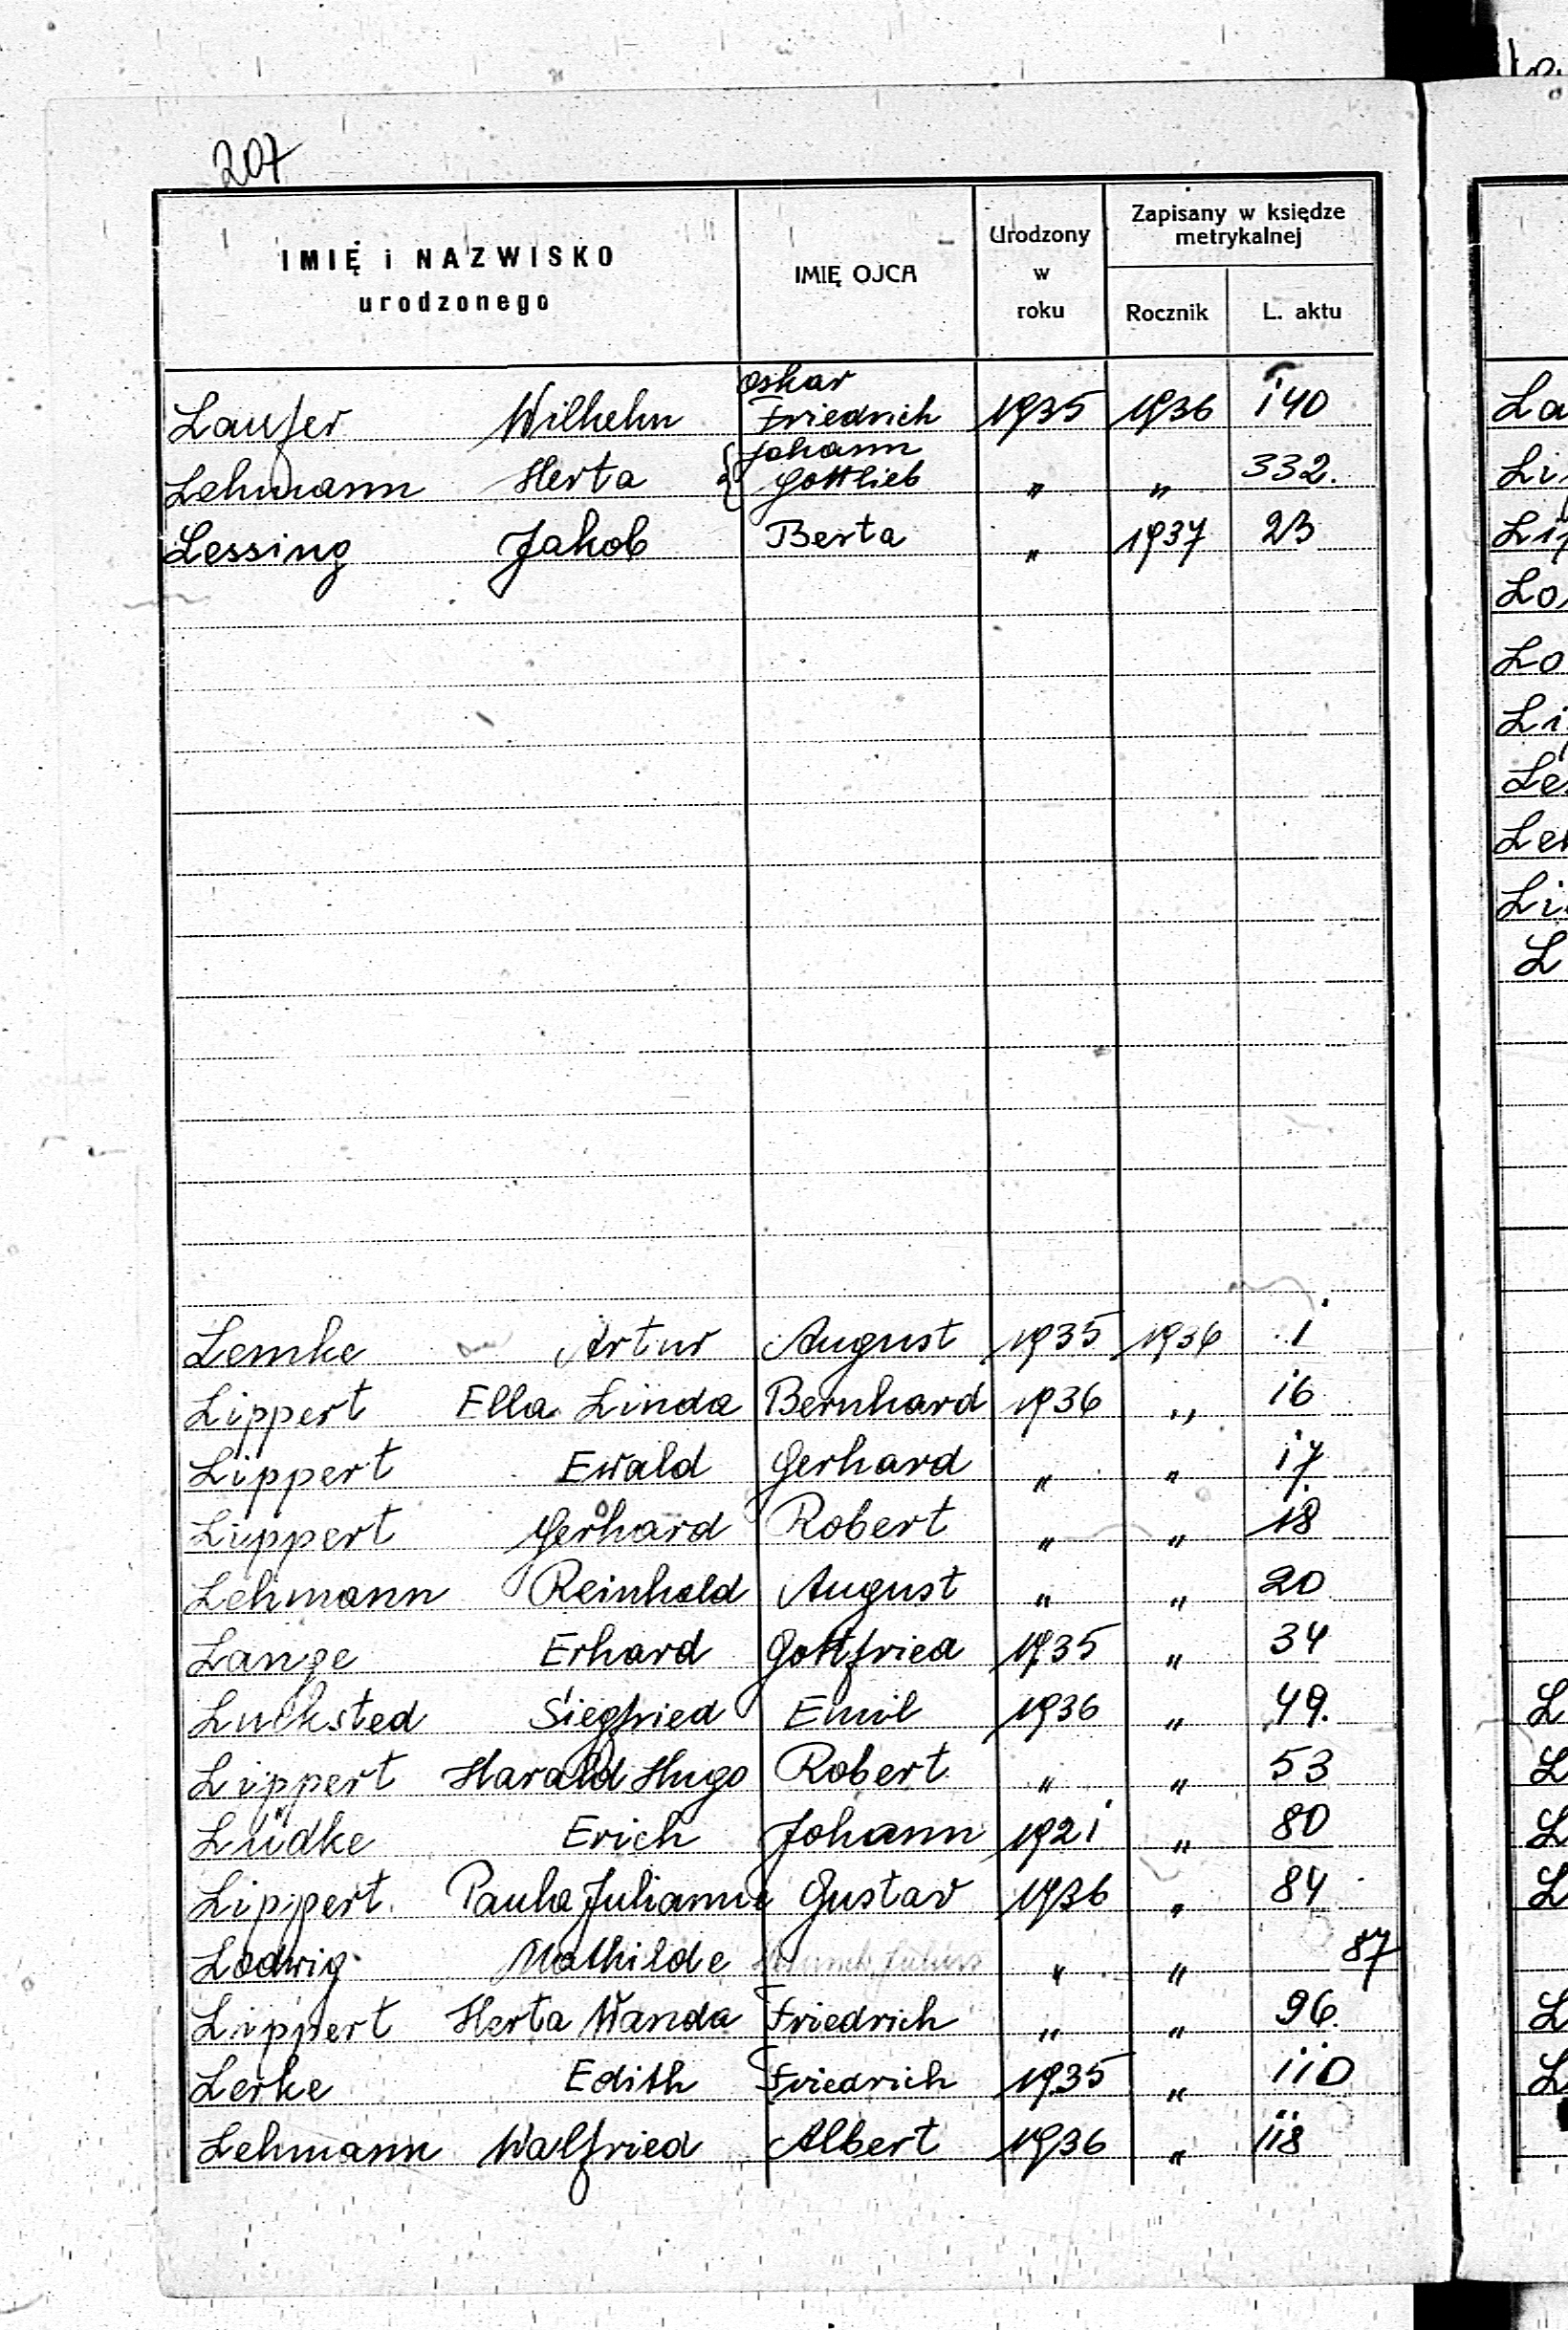 207
IMIĘ i NAZWISKO
urodzonego
IMIĘ OJCA
Urodzony
w
roku
Zapisany w księdze
metrykalnej
Rocznik L. aktu
Oskar
Laufer Wilhelm Friedrich 1935 1936 140
Johann
Lehmann Herta { Gottlieb " " 332.
Lessing Jakob Berta " 1937 23
Lemke Artur August 1935 1936 1
Lippert Ella Linda Bernhard 1936 " 16
Lippert Ewald Gerhard " " 17
Lippert Gerhard Robert " " 18
Lehmann Reinhold August " " 20
Lange Erhard Gottfried 1935 " 34
Lucksted Siegfried Emil 1936 " 49.
Lippert Harald Hugo Robert " " 53
Lüdke Erich Johann 1921 " 80
Lippert Paula Julianne Gustav 1936 " 84
Lodwig Mathilde " " 87
Lippert Herta Wanda Friedrich " " 96.
Lerke Edith Friedrich 1935 " 110
Lehmann Walfried Albert 1936 " 118
La
Li
Lip
Lo
Lo
Li
Le
Le
Li
L
L
L
L
L
L
L